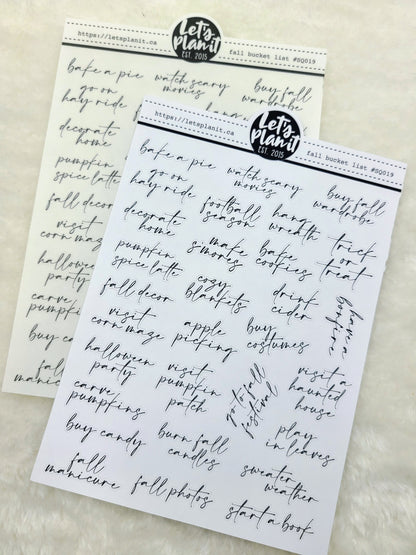 https://letsplanit.ca
Let's
Planit
EST. 2015
fall bucket list #SQ019
bake a pie
watch scary
movies
buy fall
wardrobe
go on
hay ride
hang
decorate
home
pumpkin
spice latte
fall decor
visit
corn maze
halloween
party
carve
pumpkins
buy candy
fall
manicure
https://letsplanit.ca
Let's
Planit
EST. 2015
fall bucket list #SQ019
bake a pie
watch scary
movies
buy fall
wardrobe
go on
hay ride
football
season
hang
wreath
trick
or
treat
decorate
home
make
s'mores
bake
cookies
pumpkin
spice latte
cozy
blankets
drink
cider
have a
bonfire
fall decor
visit
corn maze
apple
picking
buy
costumes
halloween
party
visit
pumpkin
patch
go to fall
festival
visit a
haunted
house
carve
pumpkins
play
in leaves
buy candy
burn fall
candles
sweater
weather
fall
manicure
fall photos
start a book